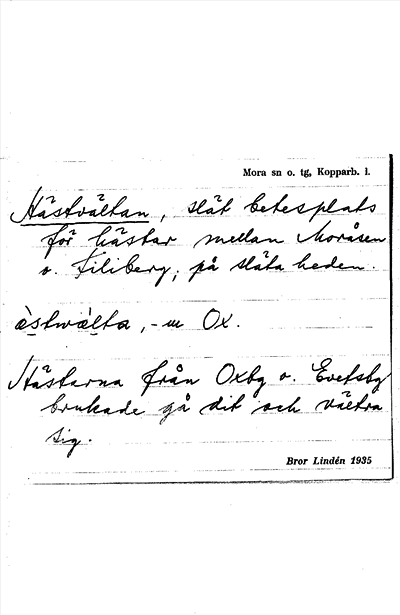 Mora sn o. tg, Kopparb. l.
Hästvältan, slät betesplats
för hästar mellan Moråsen
o. Filiberg, på släta heden.
Hästarna från Oxbg o. Evetsbg
brukade gå dit och vältra
sig.
Bror Lindén 1935